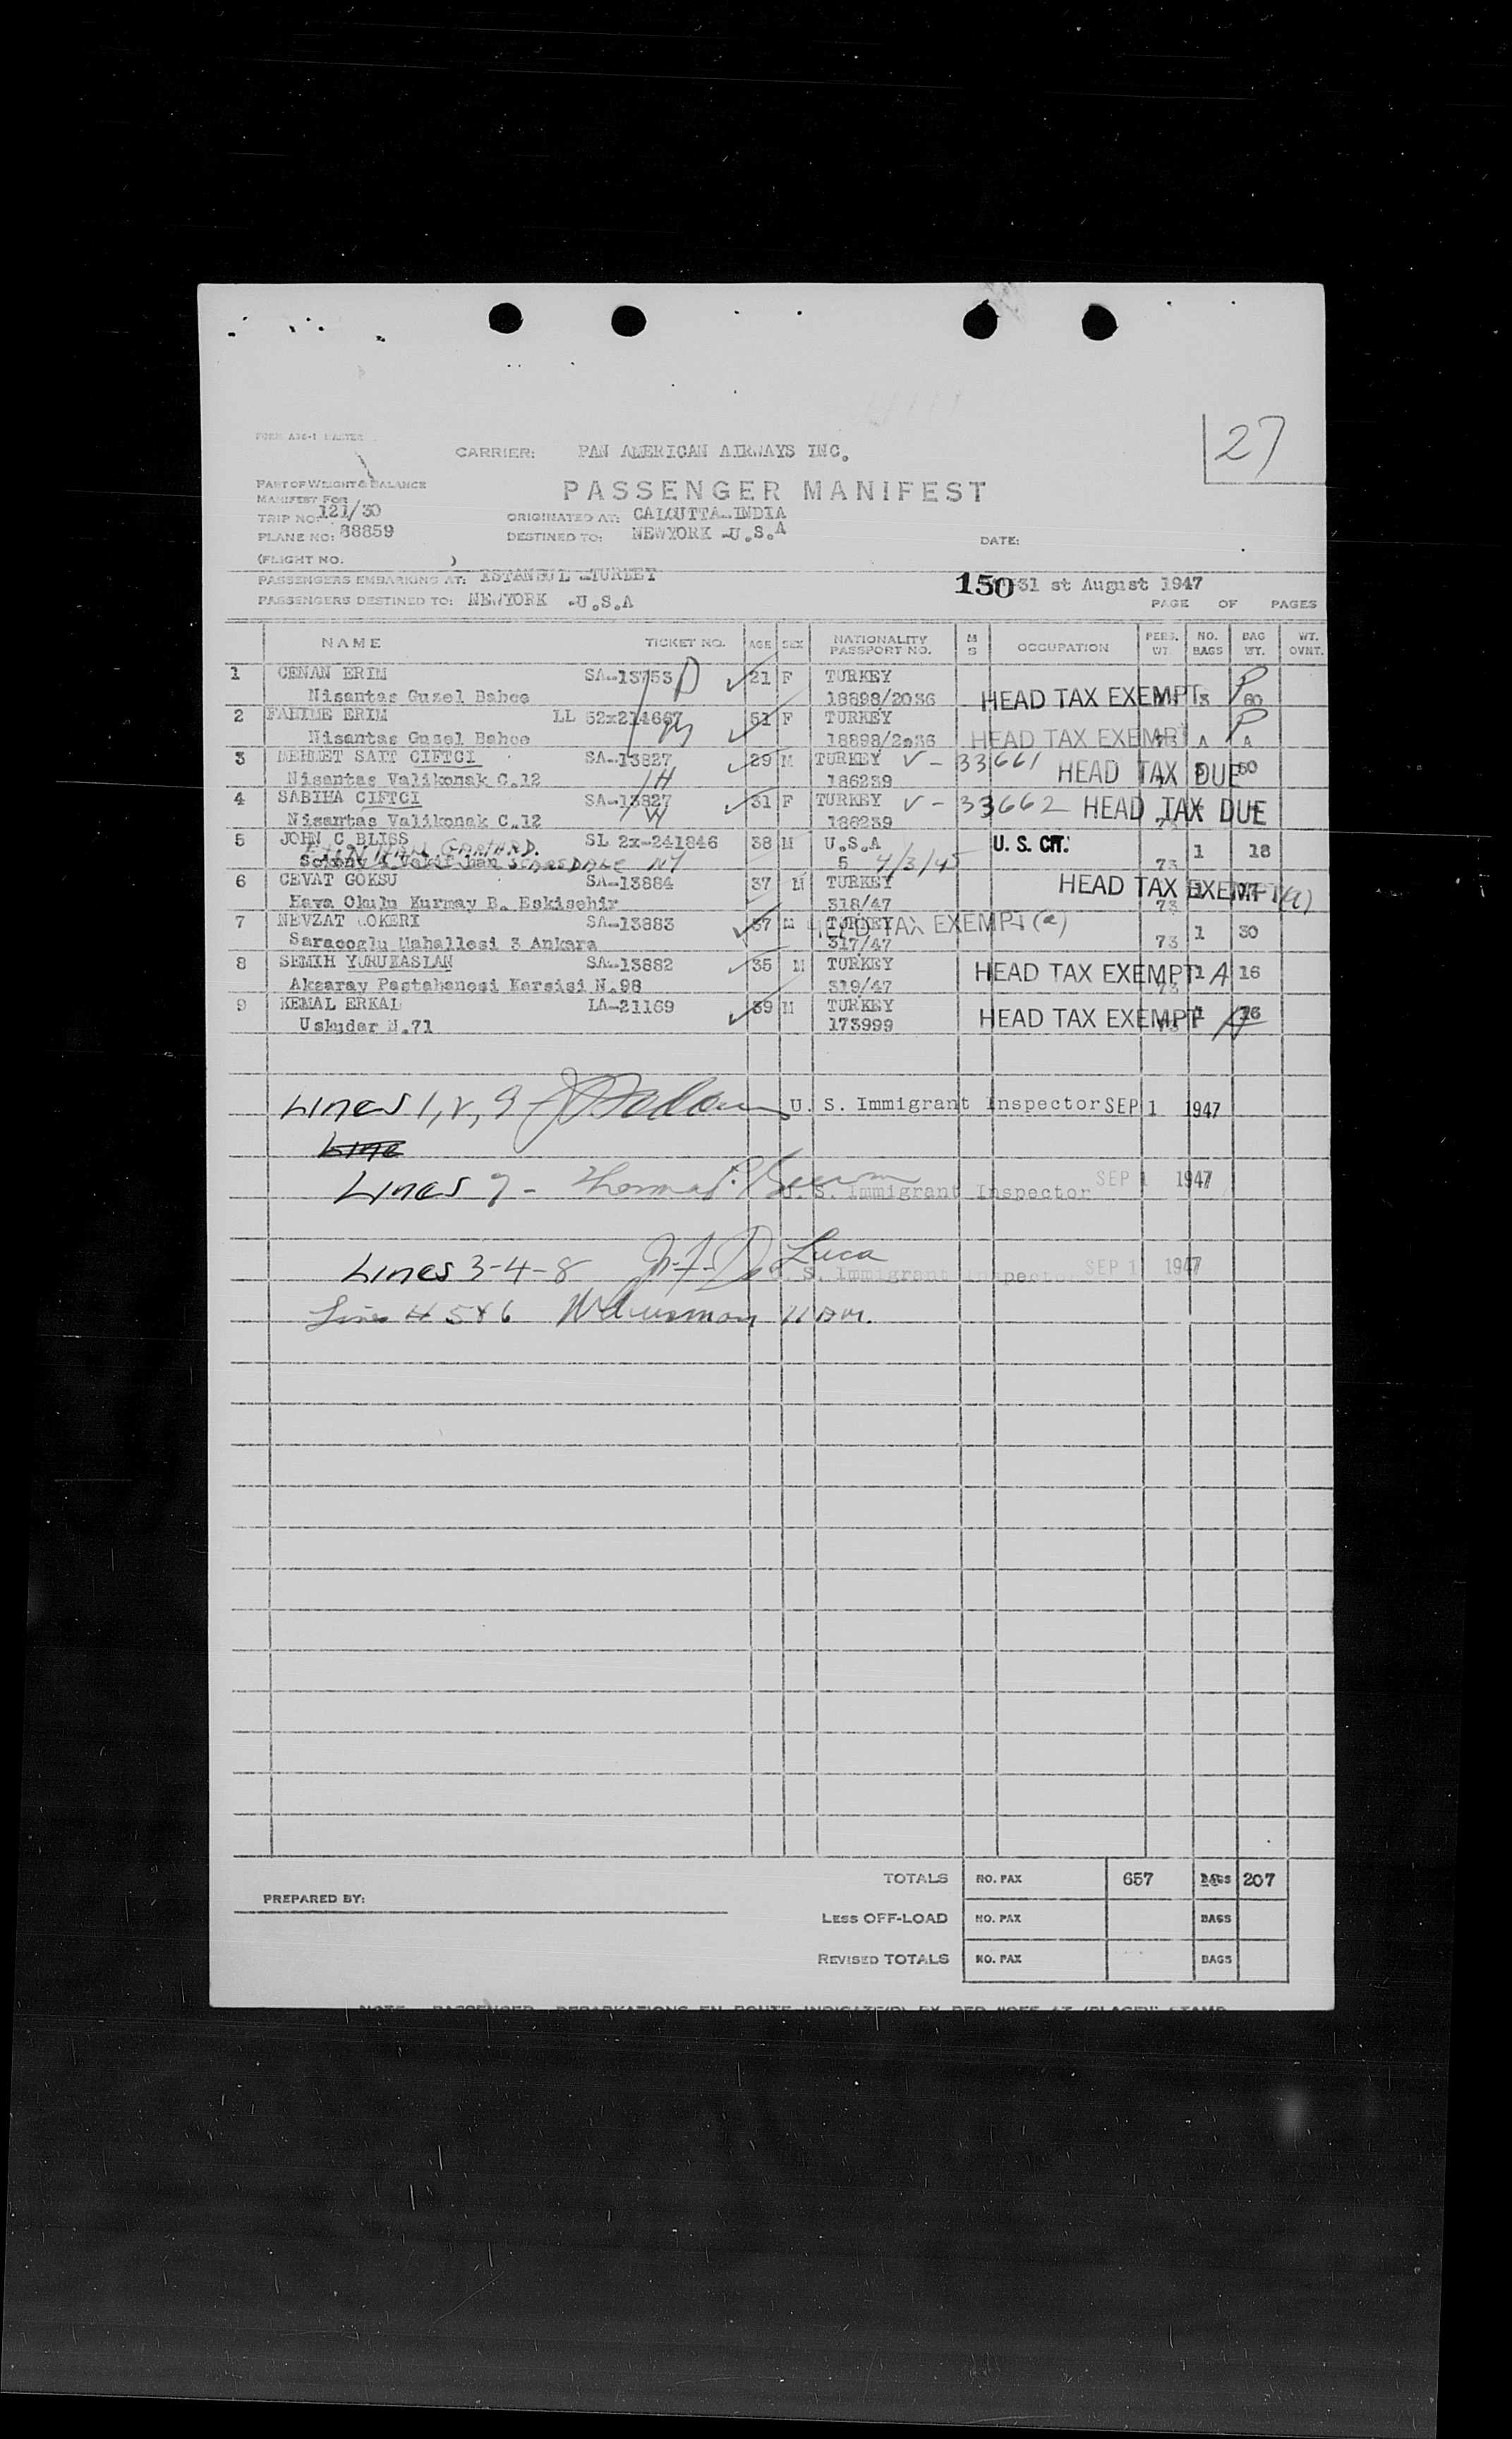 FORM A36-1 MASTER
27
CARRIER: PAN AMERICAN AIRWAYS INC.
PART OF WEIGHT & BALANCE
MANIFEST FOR
PASSENGER MANIFEST
TRIP NO: 121/30
ORIGINATED AT: CALCUTTA-INDIA
PLANE NO: 88859
DESTINED TO: NEWYORK -U.S.A
DATE:
(FLIGHT NO. )
PASSENGERS EMBARKING AT: ISTANBUL -TURKEY
150 31 st August 1947
PASSENGERS DESTINED TO: NEWYORK -U.S.A
PAGE OF PAGES
NAME TICKET NO. AGE SEX NATIONALITY PASSPORT NO. M S OCCUPATION PERS. WT. NO. BAGS BAG WT. WT. OVNT.
1 CENAN ERIM SA-13753 D 21 F TURKEY
Nisantas Guzel Bahce 18898/2036 HEAD TAX EXEMPT 3 P 60
2 FAHIME ERIM LL 52x214667 M 51 F TURKEY P
Nisantas Guzel Bahce 18898/2036 HEAD TAX EXEMPT A A
3 MEHMET SAIT CIFTCI SA-13827 29 M TURKEY V-33661 HEAD TAX DUE 60
Nisantas Valikonak C.12 H 186239
4 SABIHA CIFTCI SA-13827 31 F TURKEY V-33662 HEAD TAX DUE
Nisantas Valikonak C.12 W 186239 73
5 JOHN C BLISS SL 2x-241846 38 M U.S.A U. S. CIT. 1 18
Vakif han SCARSDALE NY 5 4/3/45 73
6 CEVAT GOKSU SA-13884 37 M TURKEY HEAD TAX EXEMPT (a)
Hava Okulu Kurmay B. Eskisehir 318/47 73
7 NEVZAT GOKERI SA-13883 37 M TURKEY HEAD TAX EXEMPT (a) 1 30
Saracoglu Mahallesi 3 Ankara 317/47 73
8 SEMIH YURUKASLAN SA-13882 35 M TURKEY HEAD TAX EXEMPT 1 A 16
Aksaray Pastahanesi Karsisi N.98 319/47 73
9 KEMAL ERKAL LA-21169 39 M TURKEY
Uskudar N.71 173999 HEAD TAX EXEMPT 1 A 16
Lines 1, 2, 9 U. S. Immigrant Inspector SEP 1 1947
Line
Lines 7 - Thomas P. U. S. Immigrant Inspector SEP 1 1947
Lines 3-4-8 De Luca U. S. Immigrant Inspector SEP 1 1947
Lines # 5 & 6
TOTALS NO. PAX 657 BAGS 207
PREPARED BY:
LESS OFF-LOAD NO. PAX BAGS
REVISED TOTALS NO. PAX BAGS